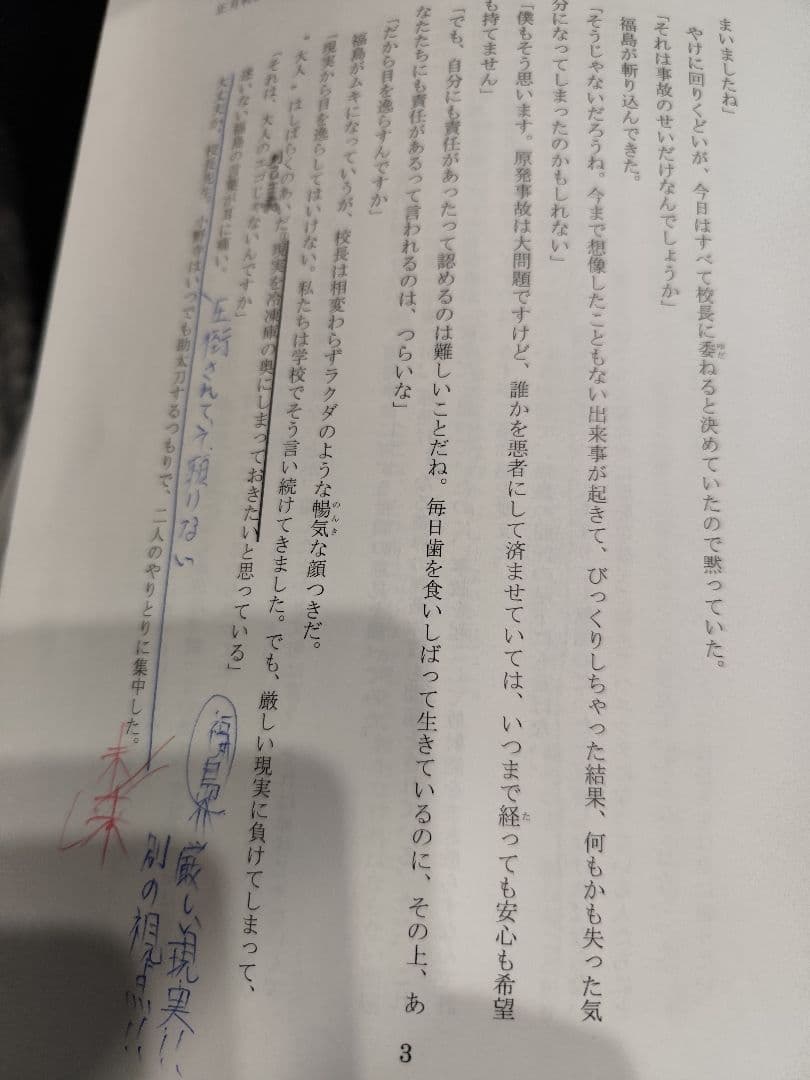 まいましたね」
やけに回りくどいが、今日はすべて校長に委ねると決めていたので黙っていた。
「それは事故のせいだけなんでしょうか」
福島が斬り込んできた。
「そうじゃないだろうね。今まで想像したこともない出来事が起きて、びっくりしちゃった結果、何もかも失った気
分になってしまったのかもしれない」
「僕もそう思います。原発事故は大問題ですけど、誰かを悪者にして済ませていては、いつまで経っても安心も希望
も持てません」
「でも、自分にも責任があったって認めるのは難しいことだね。毎日歯を食いしばって生きているのに、その上、あ
なたたちにも責任があるって言われるのは、つらいな」
「だから目を逸らすんですか」
福島がムキになっていうが、校長は相変わらずラクダのような暢気な顔つきだ。
「現実から目を逸らしてはいけない。私たちは学校でそう言い続けてきました。でも、厳しい現実に負けてしまって、
〝大人〟はしばらくのあいだ現実を冷凍庫の奥にしまっておきたいと思っている」
「それは、大人のエゴじゃないんですか」
迷いない福島の言葉が耳に痛い。
大丈夫、校長先生、小野寺はいつでも助太刀するつもりで、二人のやりとりに集中した。
圧倒されて
願けない
厳しい現実!!
別の視点!!
未来
3